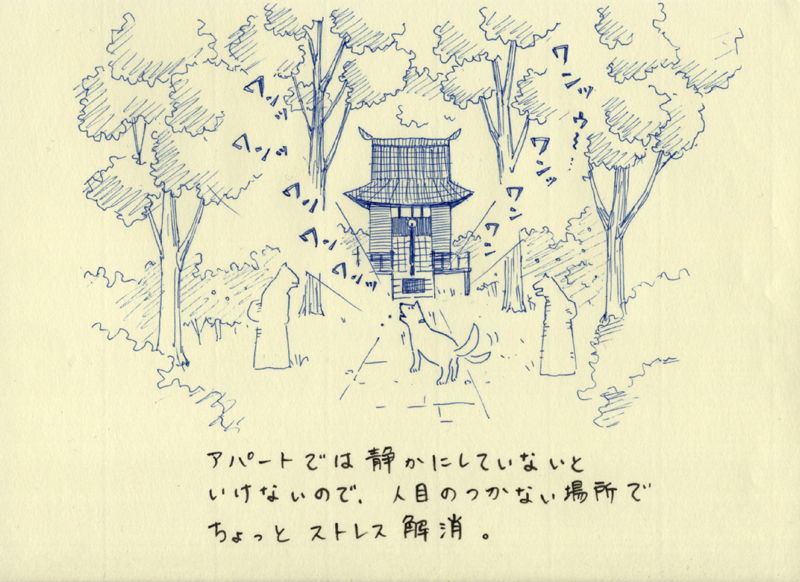 ワンッ
ワンッ
ワン
ワンッ
ワンッ
ワンッ
ウ〜…
ワンッ
ワン
ワン
アパートでは静かにしていないと
いけないので、人目のつかない場所で
ちょっとストレス解消。